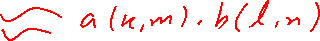 ≈ a(k,m) · b(l,n)